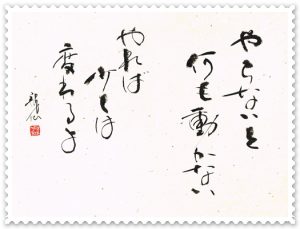 やらないと
何も動かない
やれば
少しは
変わるよ